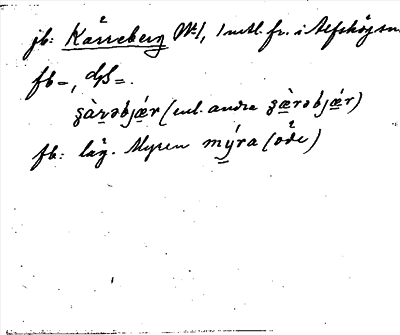 jb: Kårreberg № 1, 1 mtl. fr. i Alfshög sn
fb =, dß =.
gàrəbjǽr (enl. andra gæ̀rəbjǽr)
fb: läg. Myren mýra (öde)